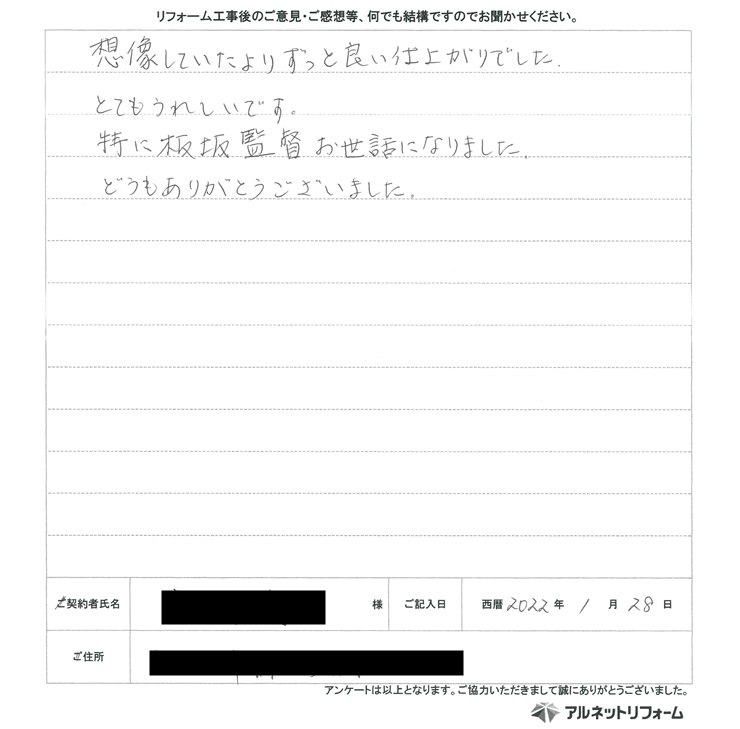 リフォーム工事後のご意見・ご感想等、何でも結構ですのでお聞かせください。
想像していたよりずっと良い仕上がりでした.
とてもうれしいです。
特に板坂監督お世話になりました.
どうもありがとうございました.
ご契約者氏名 様 ご記入日 西暦 2022 年 1 月 28 日
ご住所
アンケートは以上となります。ご協力いただきまして誠にありがとうございました。
アルネットリフォーム